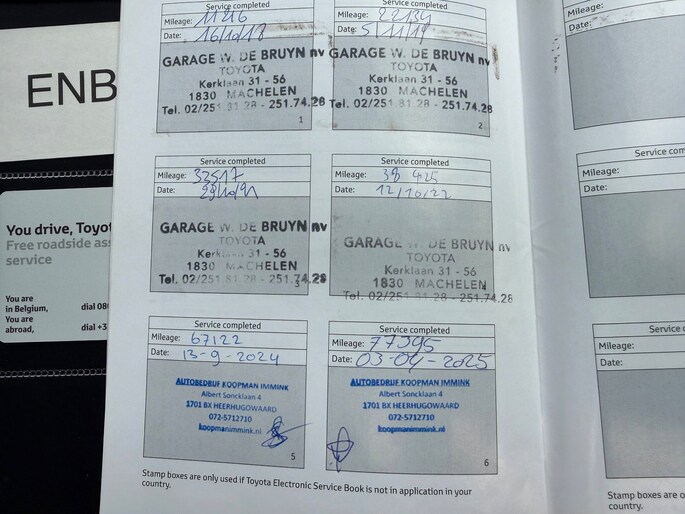 ENB
You drive, Toyot
Free roadside ass
service
You are
in Belgium, dial 080
You are
abroad, dial +3
Service completed
Mileage: 11216
Date: 16/10/18
GARAGE W. DE BRUYN nv
TOYOTA
Kerklaan 31 - 56
1830 MACHELEN
Tel. 02/251.81.28 - 251.74.28
1
Service completed
Mileage: 22134
Date: 5/11/19
GARAGE W. DE BRUYN nv
TOYOTA
Kerklaan 31 - 56
1830 MACHELEN
Tel. 02/251.81.28 - 251.74.28
2
Service completed
Mileage: 33517
Date:
GARAGE W. DE BRUYN nv
TOYOTA
Kerklaan 31 - 56
1830 MACHELEN
Tel. 02/251.81.28 - 251.74.28
3
Service completed
Mileage: 38 425
Date: 12/10/22
GARAGE W. DE BRUYN nv
TOYOTA
Kerklaan 31 - 56
1830 MACHELEN
Tel. 02/251.81.28 - 251.74.28
Service completed
Mileage: 67122
Date: 13-9-2024
AUTOBEDRIJF KOOPMAN IMMINK
Albert Soncklaan 4
1701 BX HEERHUGOWAARD
072-5712710
koopmanimmink.nl
5
Service completed
Mileage: 77395
Date: 03-04-2025
AUTOBEDRIJF KOOPMAN IMMINK
Albert Soncklaan 4
1701 BX HEERHUGOWAARD
072-5712710
koopmanimmink.nl
6
Stamp boxes are only used if Toyota Electronic Service Book is not in application in your
country.
Mileage:
Date:
Service com
Mileage:
Date:
Service c
Mileage:
Date:
Stamp boxes are o
country.